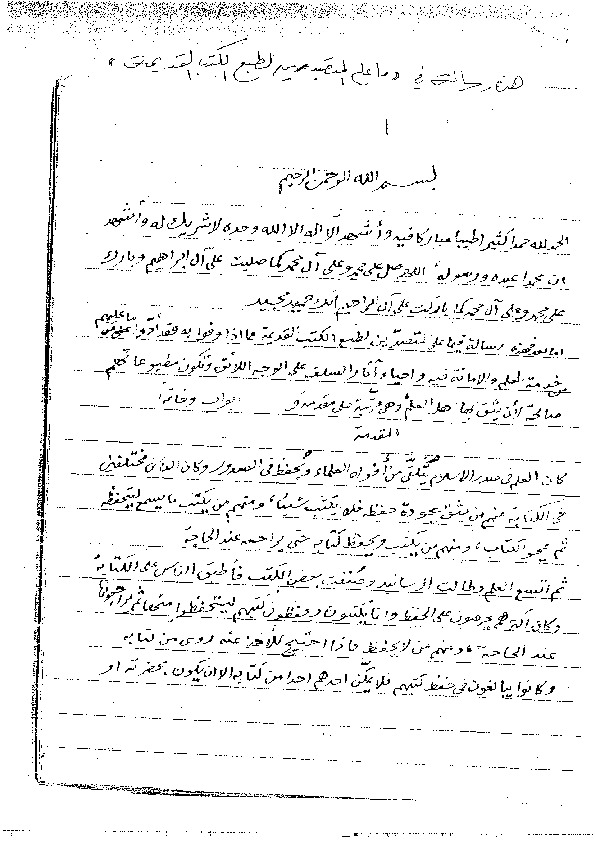 هذه رسالة في « ما على المتصدين لطبع الكتب القديمة »
بسم الله الرحمن الرحيم
الحمد لله حمدا كثيرا طيبا مباركا فيه وأشهد ألا اله الا الله وحده لا شريك له وأشهد
ان محمدا عبده ورسوله، اللهم صل على محمد وعلى آل محمد كما صليت على آل ابراهيم وبارك
على محمد وعلى آل محمد كما باركت على آل ابراهيم انك حميد مجيد
اما بعد فهذه رسالة فيما على المتصدين لطبع الكتب القديمة مما اذا وفوا به فقد أدوا ما عليهم
من خدمة العلم والامانة فيه واحياء آثار السلف على الوجه اللائق وتكون مطبوعاتهم
صالحة لأن يثق بها اهل العلم وهي مرتبة على مقدمة و ابواب وخاتمة
المقدمة
كان العلم في صدر الاسلام يتلقى من أفواه العلماء ويحفظ في الصدور وكان الناس مختلفين
في الكتابة منهم من يثق بجودة حفظه فلا يكتب شيئا، ومنهم من يكتب ما يسمع ليتحفظه
ثم يمحو الكتاب، ومنهم من يكتب ويحفظ كتابه حتى يراجعه عند الحاجة
ثم اتسع العلم وطالت الاسانيد وصنفت بعض الكتب فأطبق الناس على الكتابة
وكان أكثرهم يحرصون على الحفظ وانما يكتبون ويحفظون كتبهم ليتحفظوا منها ثم ليراجعوها
عند الحاجة، ومنهم من لا يحفظ فاذا احتيج للأخذ عنه روى من كتابه
وكانوا يبالغون في حفظ كتبهم فلا يمكن احدهم احدا من كتابه الا ان يكون بحضرته او